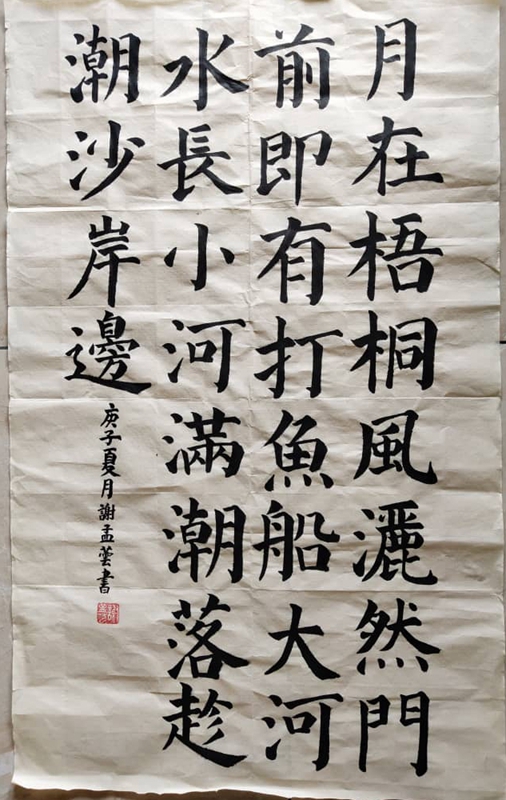 月在梧桐風灑然門
前即有打魚船大河
水長小河滿潮落趁
潮沙岸邊
庚子夏月謝孟蕓書